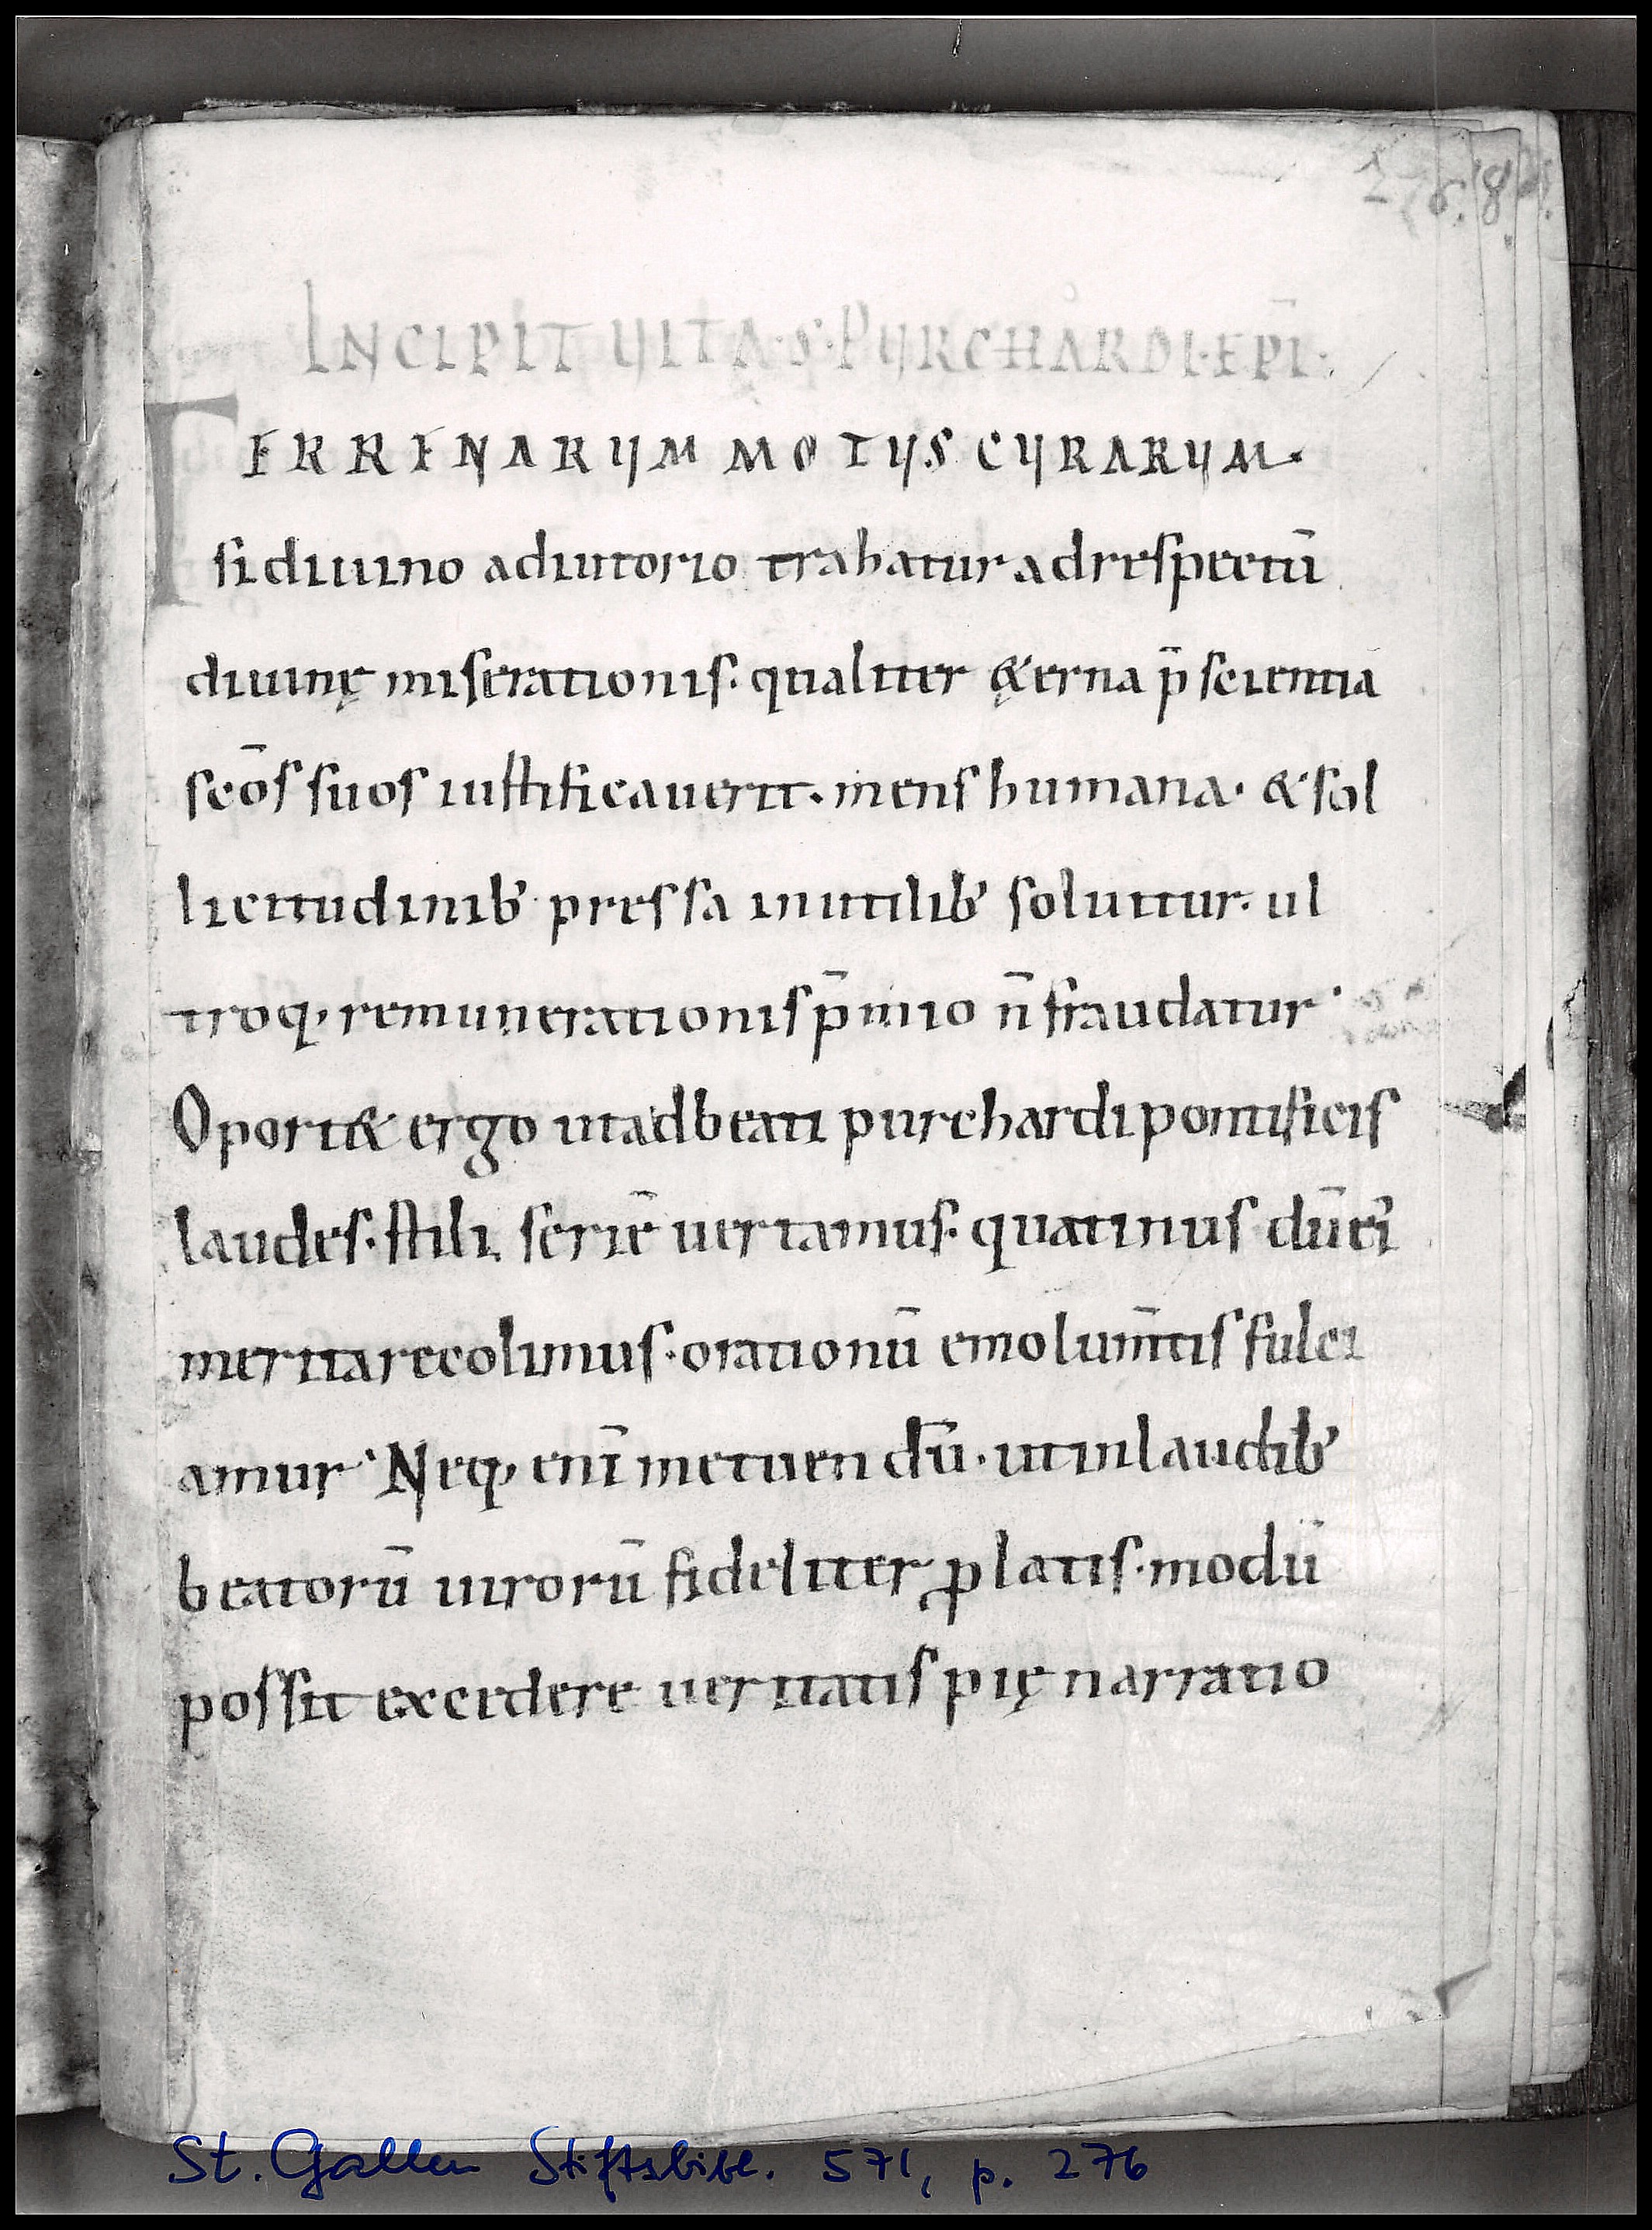 276.
INCIPIT UITA·S·PURCHARDI·EPI̅·
TERRENARUM MOTUS CURARUM·
si diuino adiutorio trahatur ad respectū
diuinę miserationis· qualiter ę&erna p̄scientia
sc̄os suos iustificauerit· mens humana· & sol
licitudinib; pressa inutilib; soluitur· ul
troq; remunerationis p̄mio n̄ fraudatur·
Oport& ergo ut ad beati purchardi pontificis
laudes· stili seriē uertamus· quatinus dū ei
merita recolimus· orationū emolum̄tis fulci
amur· Neq; enī metuendū· ut in laudib;
beatorū uirorū fideliter ꝓlatis· modū
possit excedere ueritatis pię narratio
St. Gallen Stiftsbibl. 571, p. 276